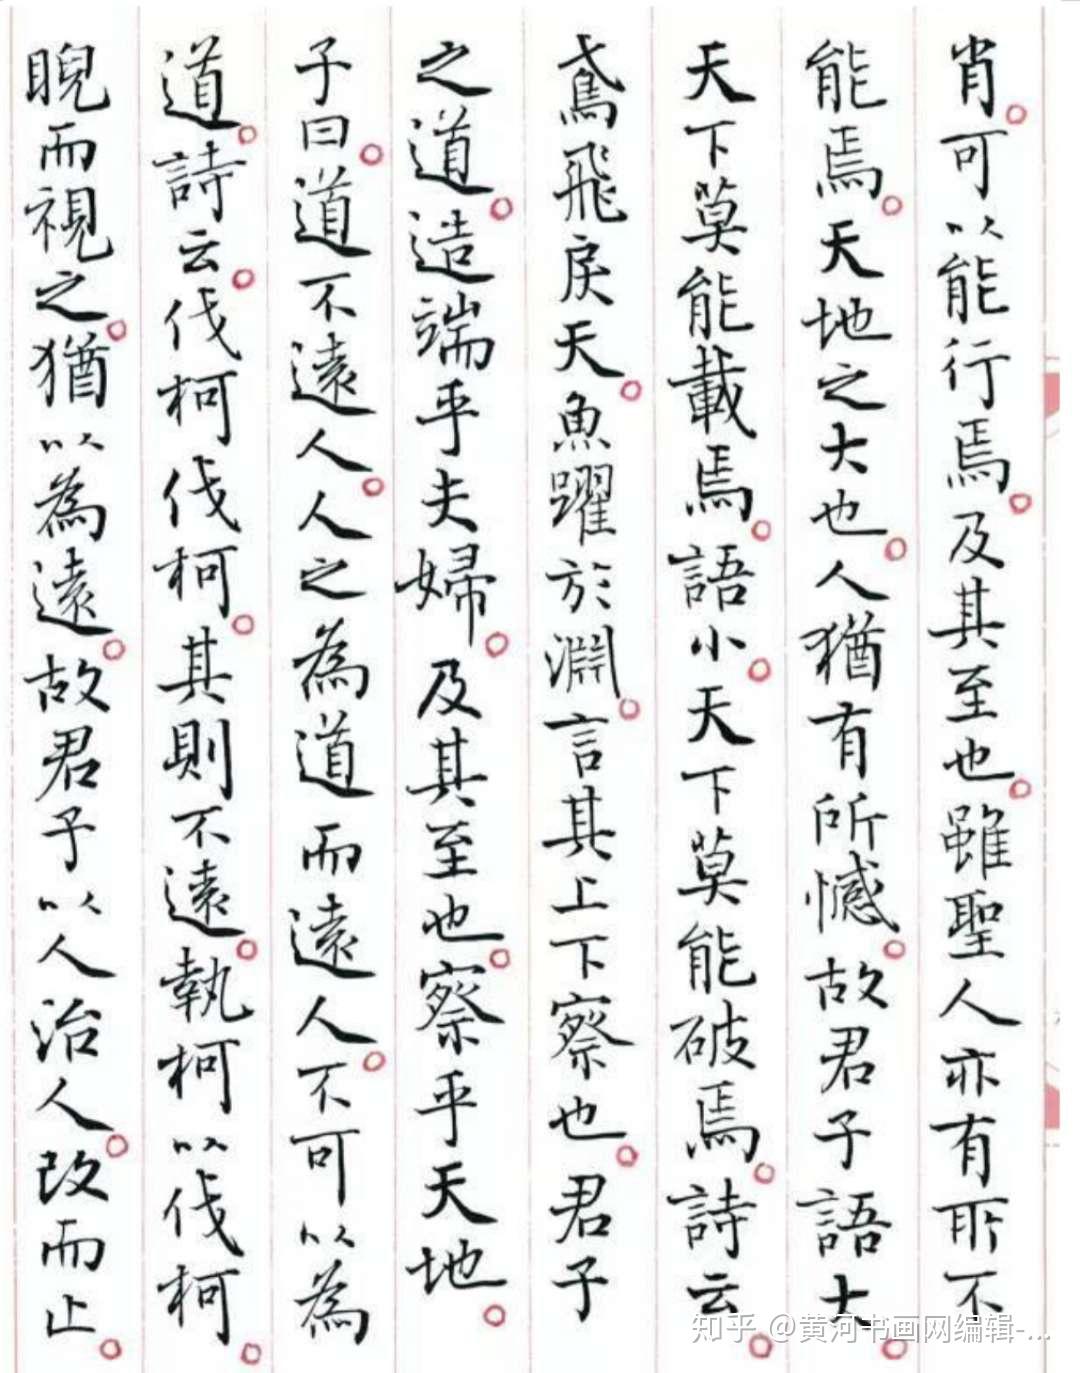 肖。可以能行焉。及其至也。雖聖人亦有所不
能焉。天地之大也。人猶有所憾。故君子語大。
天下莫能載焉。語小。天下莫能破焉。詩云。
鳶飛戾天。魚躍於淵。言其上下察也。君子
之道。造端乎夫婦。及其至也。察乎天地。
子曰。道不遠人。人之為道而遠人。不可以為
道。詩云。伐柯伐柯。其則不遠。執柯以伐柯。
睨而視之。猶以為遠。故君子以人治人。改而止。
知乎 @黄河书画网编辑-...